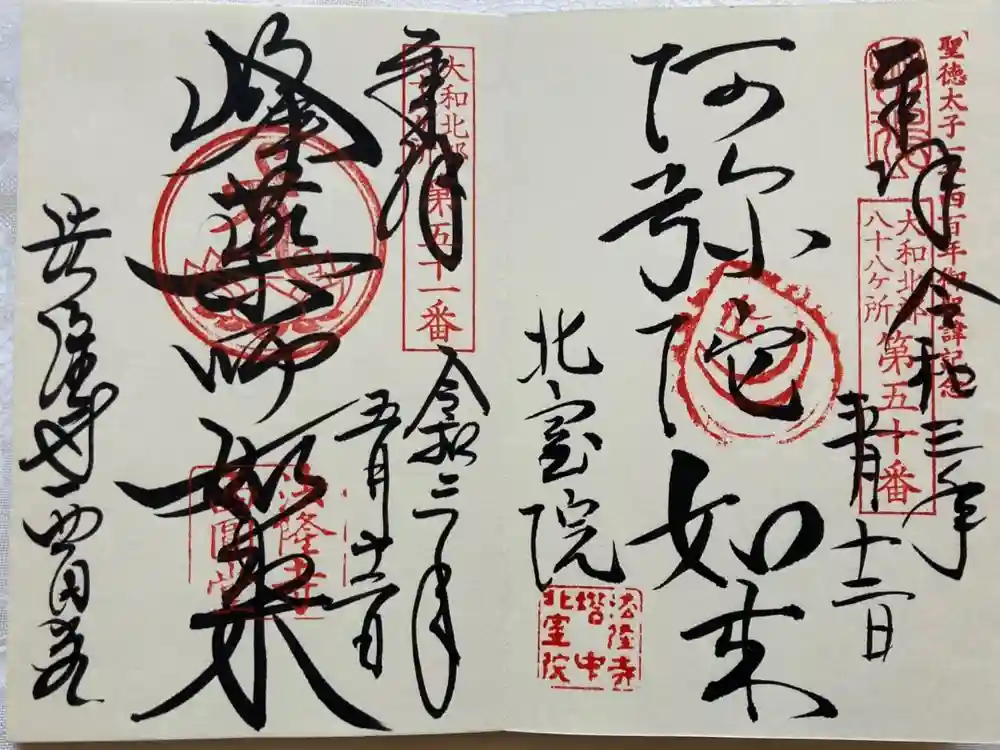 奉拝
令和三年
五月十二日
大和北部
八十八ケ所
第五十番
阿弥陀如来
北室院
法隆寺
塔中
北室院
奉拝
大和北部
第五十一番
令和三年
五月十二日
峰薬師如来
法隆寺
西圓堂
法隆寺西円堂